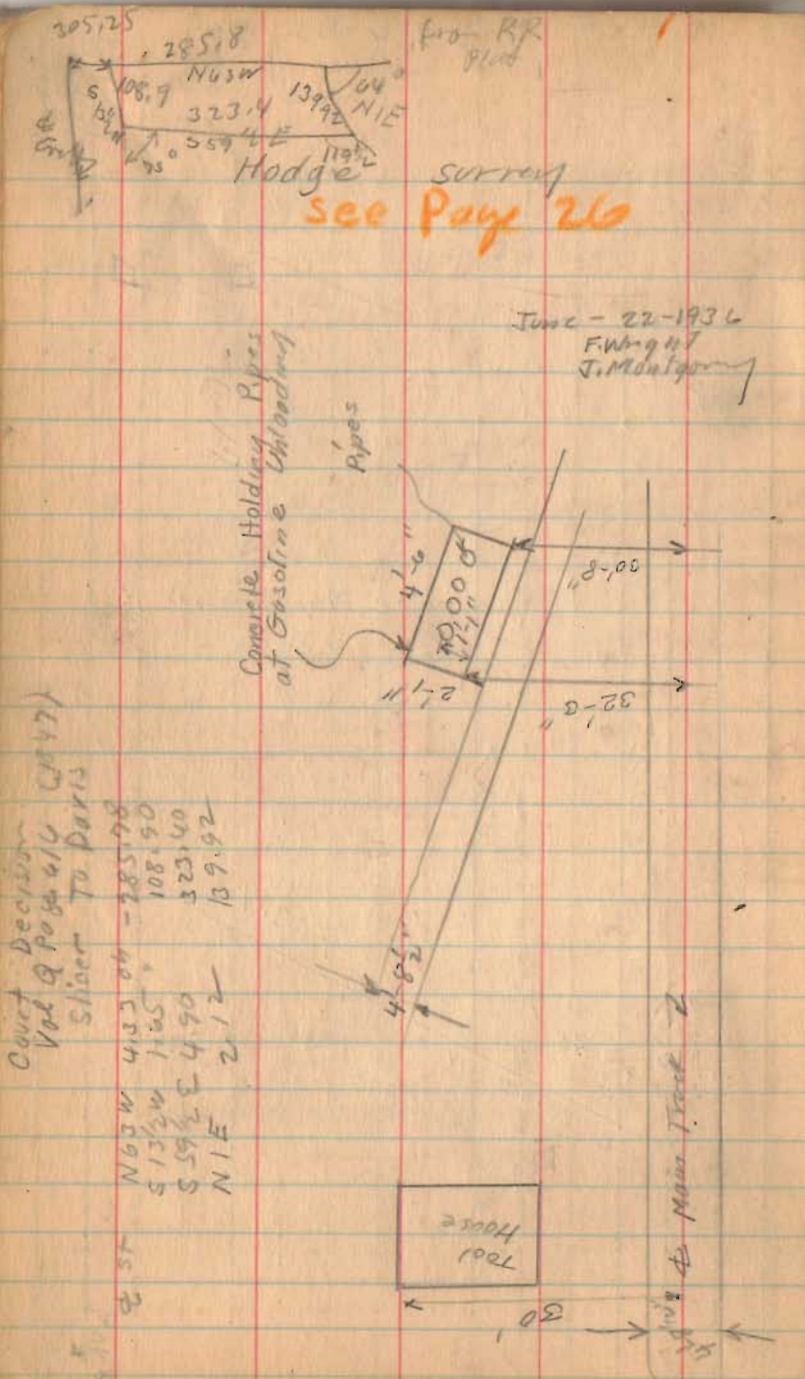 305.25
285.8
from RR
Plat
N63W
108.9
64°
N1E
139.92
323.4
S59½E
75°
119½
Hodge survey
see Page 26
June - 22 - 1936
F. Wright
J. Montgomry
Concrete Holding Pipes
at Gasoline Unloading
Pipes
4'-6"
1'-1"
2'-1"
32'-0"
4'-8½"
Court Decision
Vol Q Page 416 (1847)
Slicer To Davis
N63W 4.33 - 285.78
S13½W 1.65 108.90
S59½E 4.90 323.40
N1E 2.12 139.92
Tool
House
30'
Main Track